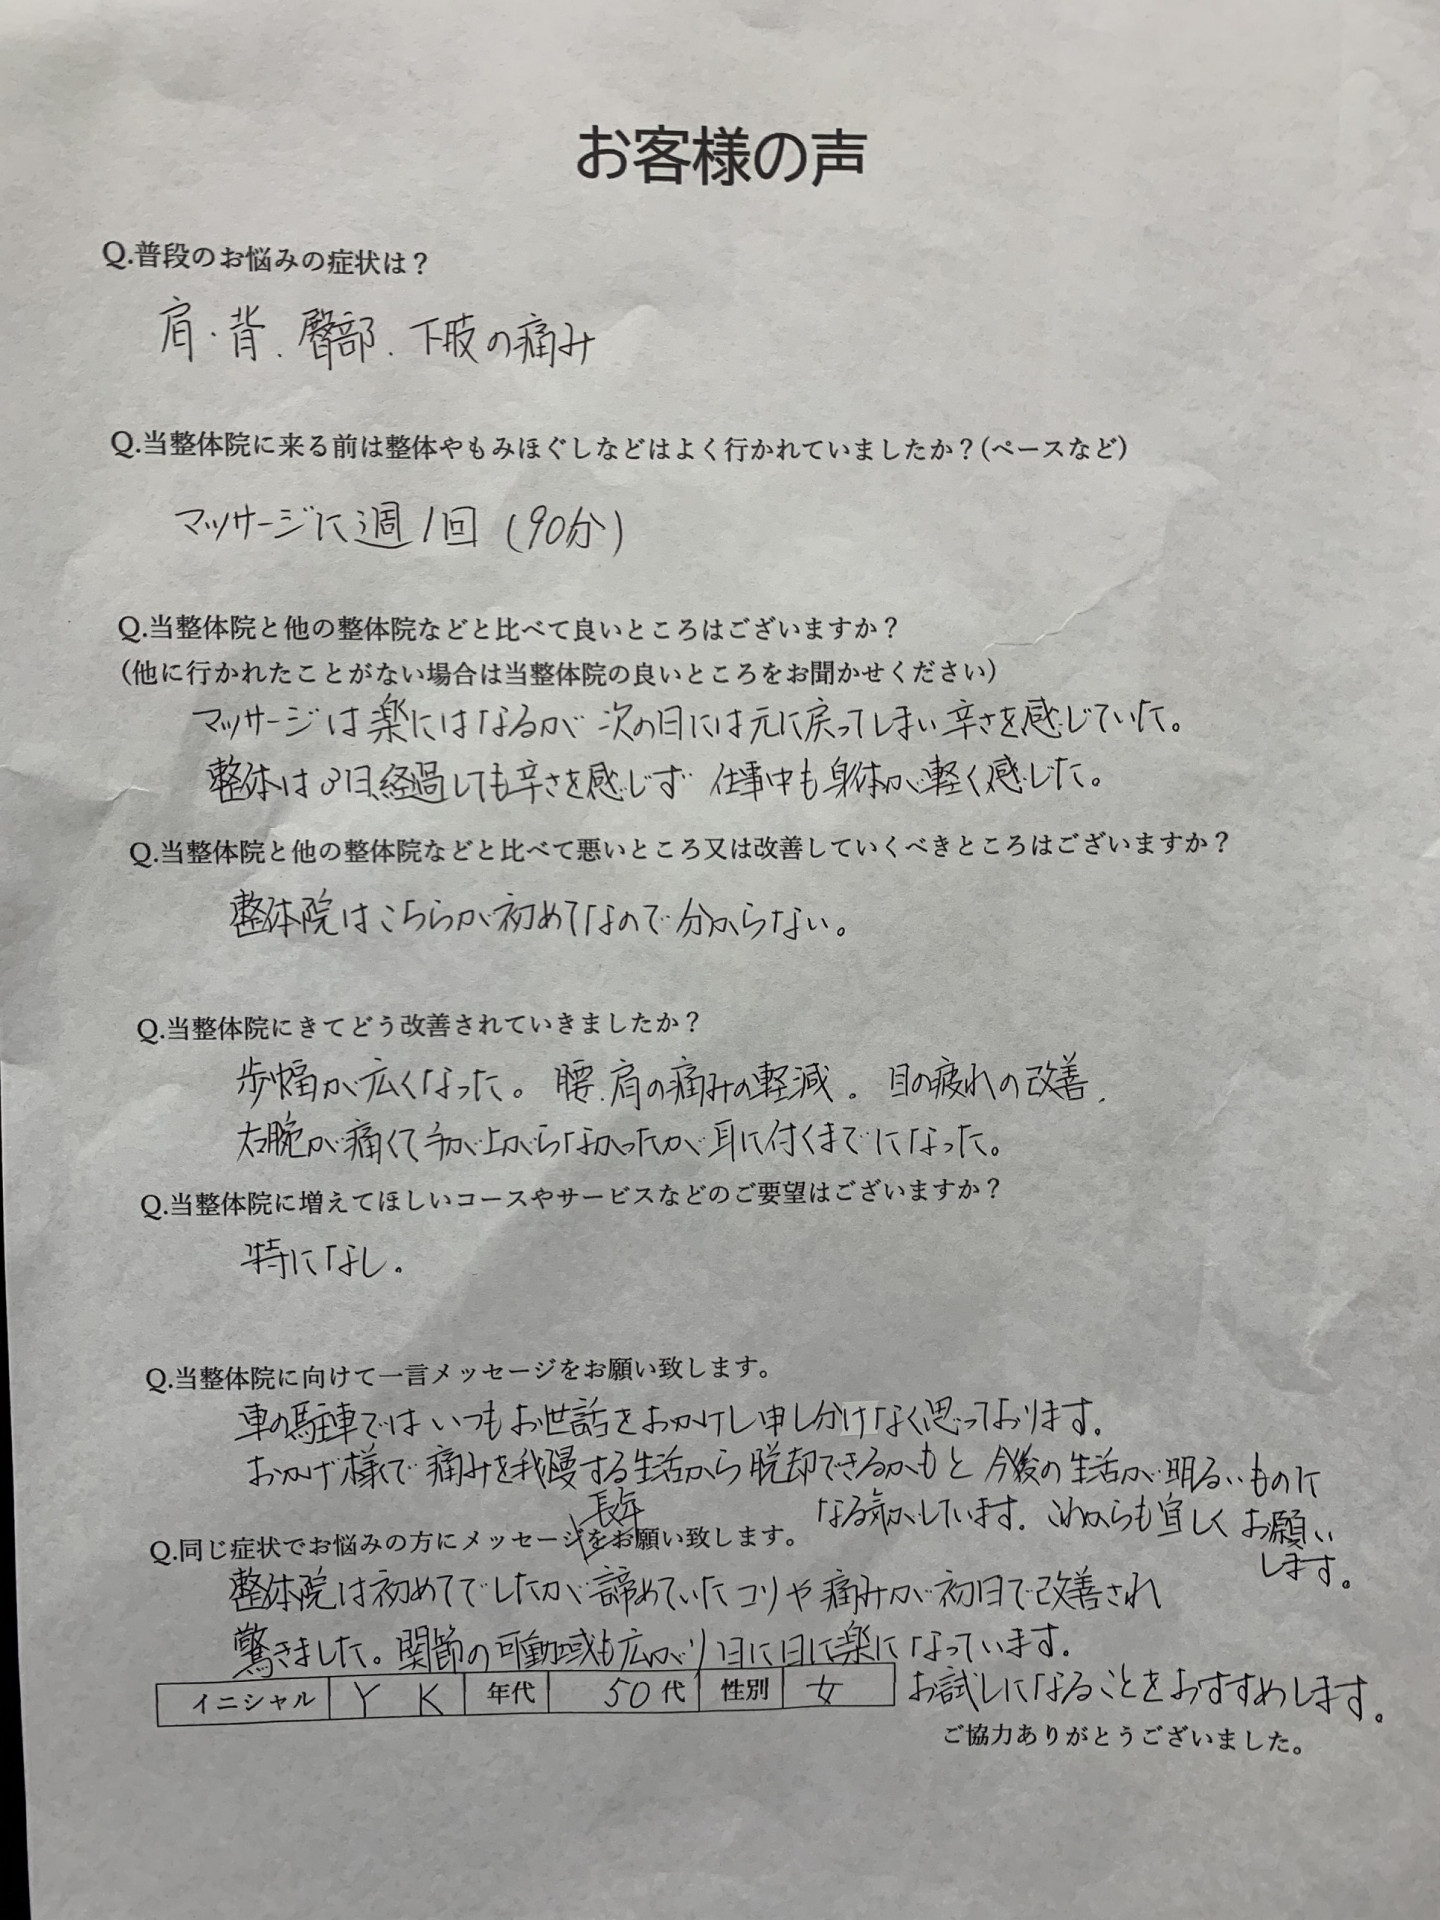 お客様の声
Q.普段のお悩みの症状は？
肩・背、臀部、下肢の痛み
Q.当整体院に来る前は整体やもみほぐしなどはよく行かれていましたか？(ペースなど)
マッサージに週1回 (90分)
Q.当整体院と他の整体院などと比べて良いところはございますか？
(他に行かれたことがない場合は当整体院の良いところをお聞かせください)
マッサージは楽にはなるが 次の日には元に戻ってしまい 辛さを感じていた。
整体は3日経過しても辛さを感じず 仕事中も身体が軽く感じた。
Q.当整体院と他の整体院などと比べて悪いところ又は改善していくべきところはございますか？
整体院はこちらが初めてなので分からない。
Q.当整体院にきてどう改善されていきましたか？
歩幅が広くなった。 腰、肩の痛みの軽減。 目の疲れの改善、
右腕が痛くて手が上がらなかったが耳に付くまでになった。
Q.当整体院に増えてほしいコースやサービスなどのご要望はございますか？
特になし。
Q.当整体院に向けて一言メッセージをお願い致します。
車の駐車ではいつもお世話をおかけし申し分けなく思っております。
おかげ様で痛みを我慢する生活から脱却できるかもと 今後の生活が明るいものに
なる気がしています。これからも宜しくお願い
します。
Q.同じ症状でお悩みの方にメッセージをお願い致します。
長年
整体院は初めてでしたが諦めていたコリや痛みが初日で改善され
驚きました。関節の可動域も広がり日に日に楽になっています。
お試しになることをおすすめします。
イニシャル Y K 年代 50代 性別 女
ご協力ありがとうございました。